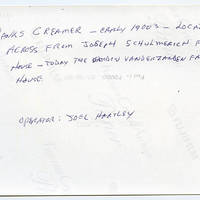 ANKS CREAMER - EARLY 1900'S - LOCA
ACROSS FROM JOSEPH SCHULMERICH F
HOUSE - TODAY THE VANDERZANDEN FA
HOUSE
OPERATOR: JOEL HARTLEY